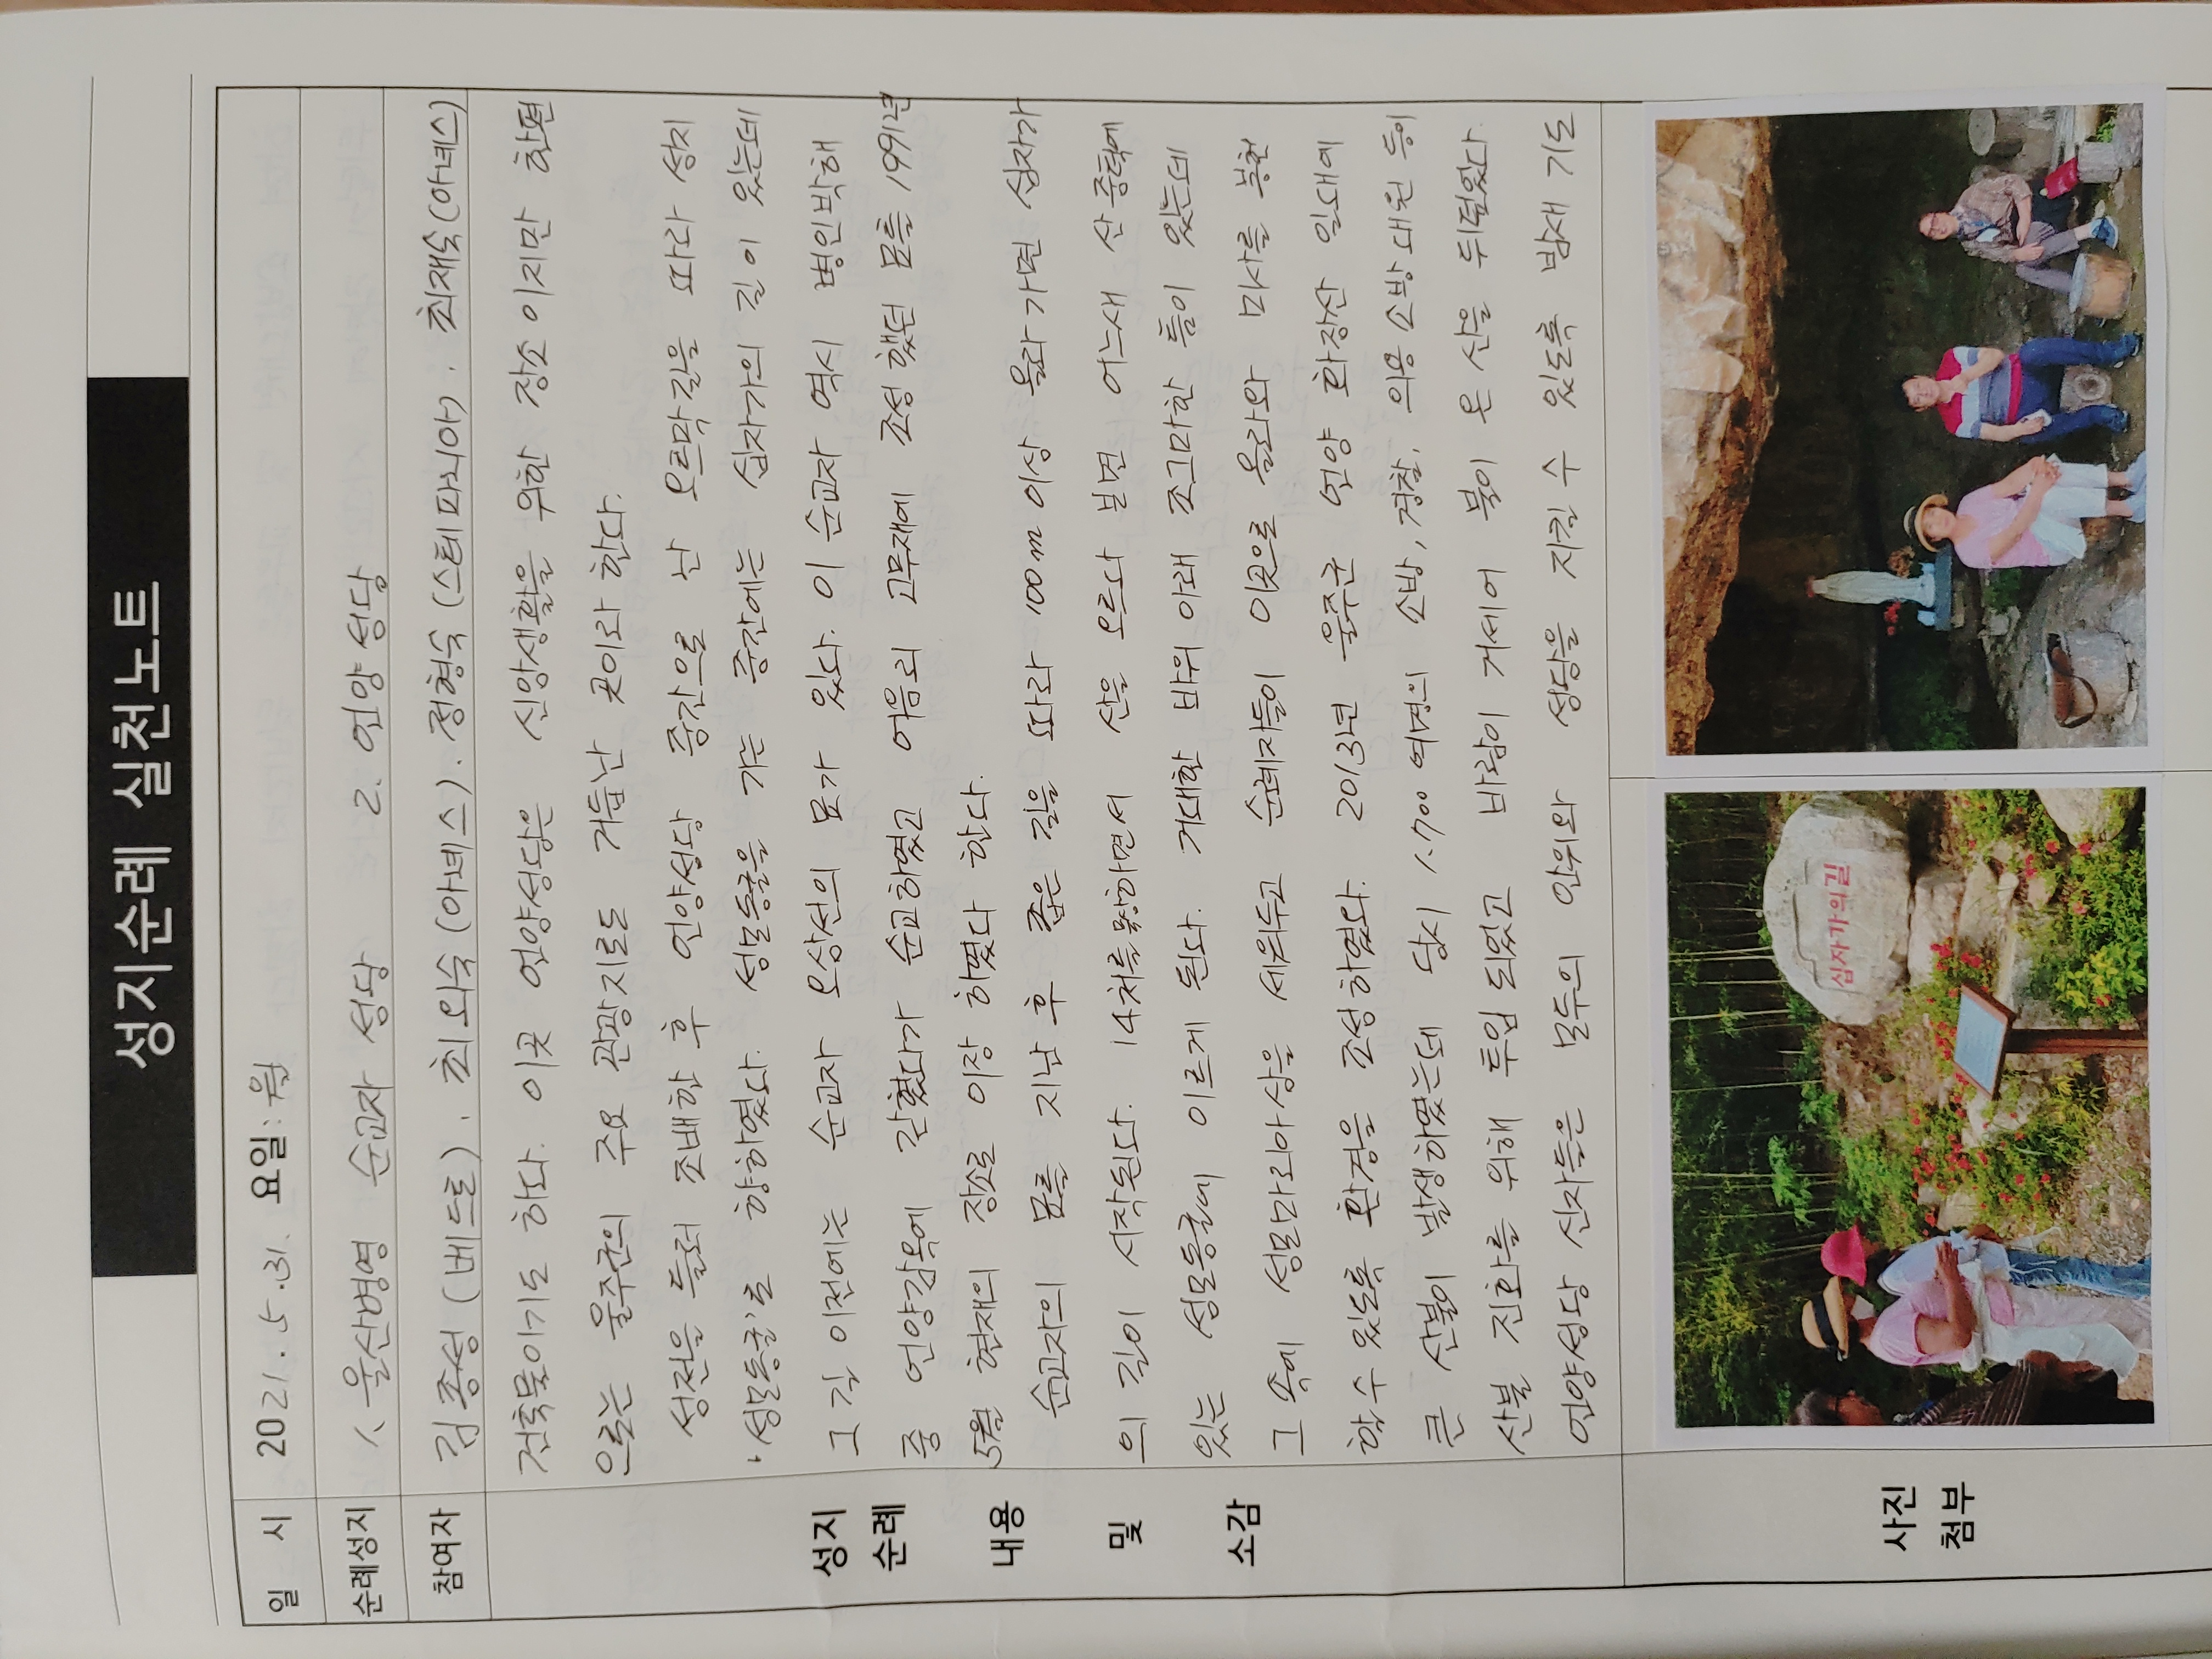 성지순례 실천노트
일 시 2021. 5. 31. 요일: 월
순례성지 1. 울산병영 순교자 성당 2. 언양성당
참여자 김종성(베드로). 최외숙(아녜스). 정형숙(스테파니아). 최재숙(아녜스)
건축물이기도 하다. 이곳 언양성당은 신앙생활을 위한 장소이지만 한편
으로는 울주군의 주요 관광지로도 거듭난 곳이라 한다.
성전을 들러 조배한 후 언양성당 중간으로 난 오르막길을 따라 성지
'성모동굴'로 향하였다. 성모동굴을 가는 중간에는 십자가의 길이 있는데
그 길 이전에는 순교자 오상선의 묘가 있다. 이 순교자 역시 병인박해
중 언양감옥에 갇혔다가 순교하였고 어음리 고무재에 조성했던 묘를 1991년
5월 현재의 장소로 이장 하였다 한다.
순교자의 묘를 지난 후 좁은 길을 따라 100m 이상 올라가면 십자가
의 길이 시작된다. 14처를 묵상하면서 산을 오르다 보면 어느새 산 중턱에
있는 성모동굴에 이르게 된다. 거대한 바위 아래 조그마한 틈이 있는데
그 속에 성모마리아상을 세워두고 순례자들이 이곳으로 올라와 미사를 봉헌
할 수 있도록 환경을 조성하였다. 2013년 울주군 언양 화장산 일대에
큰 산불이 발생하였는데 당시 1.700 여명의 소방, 경찰, 의용소방대원 등이
산불 진화를 위해 투입되었고 바람이 거세어 불이 온 산을 뒤덮었다.
언양성당 신자들은 모두의 안위와 성당을 지킬 수 있도록 밤새 기도
성지
순례
내용
및
소감
사진
첨부
십자가의길